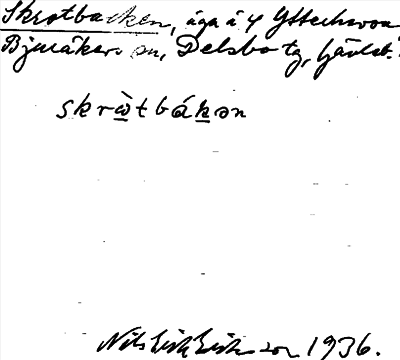 Skrotbacken, äga å 4 Ytterhwoa
Bjuråkers sn, Delsbo tg, Hävleb.
skrὼtbákən
Nils Erik Eriksson 1936.